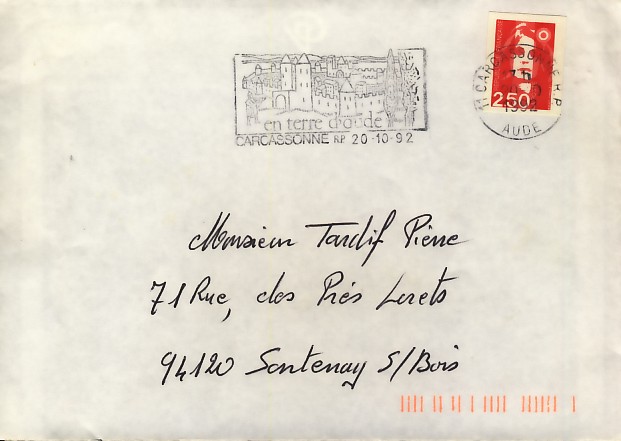 2,50
11 CARCASSONNE R.P.
1992
AUDE
en terre d'aude
CARCASSONNE RP 20-10-92
Monsieur Tardif Pierre
71 Rue, des Prés Lorets
94120 Fontenay S/Bois